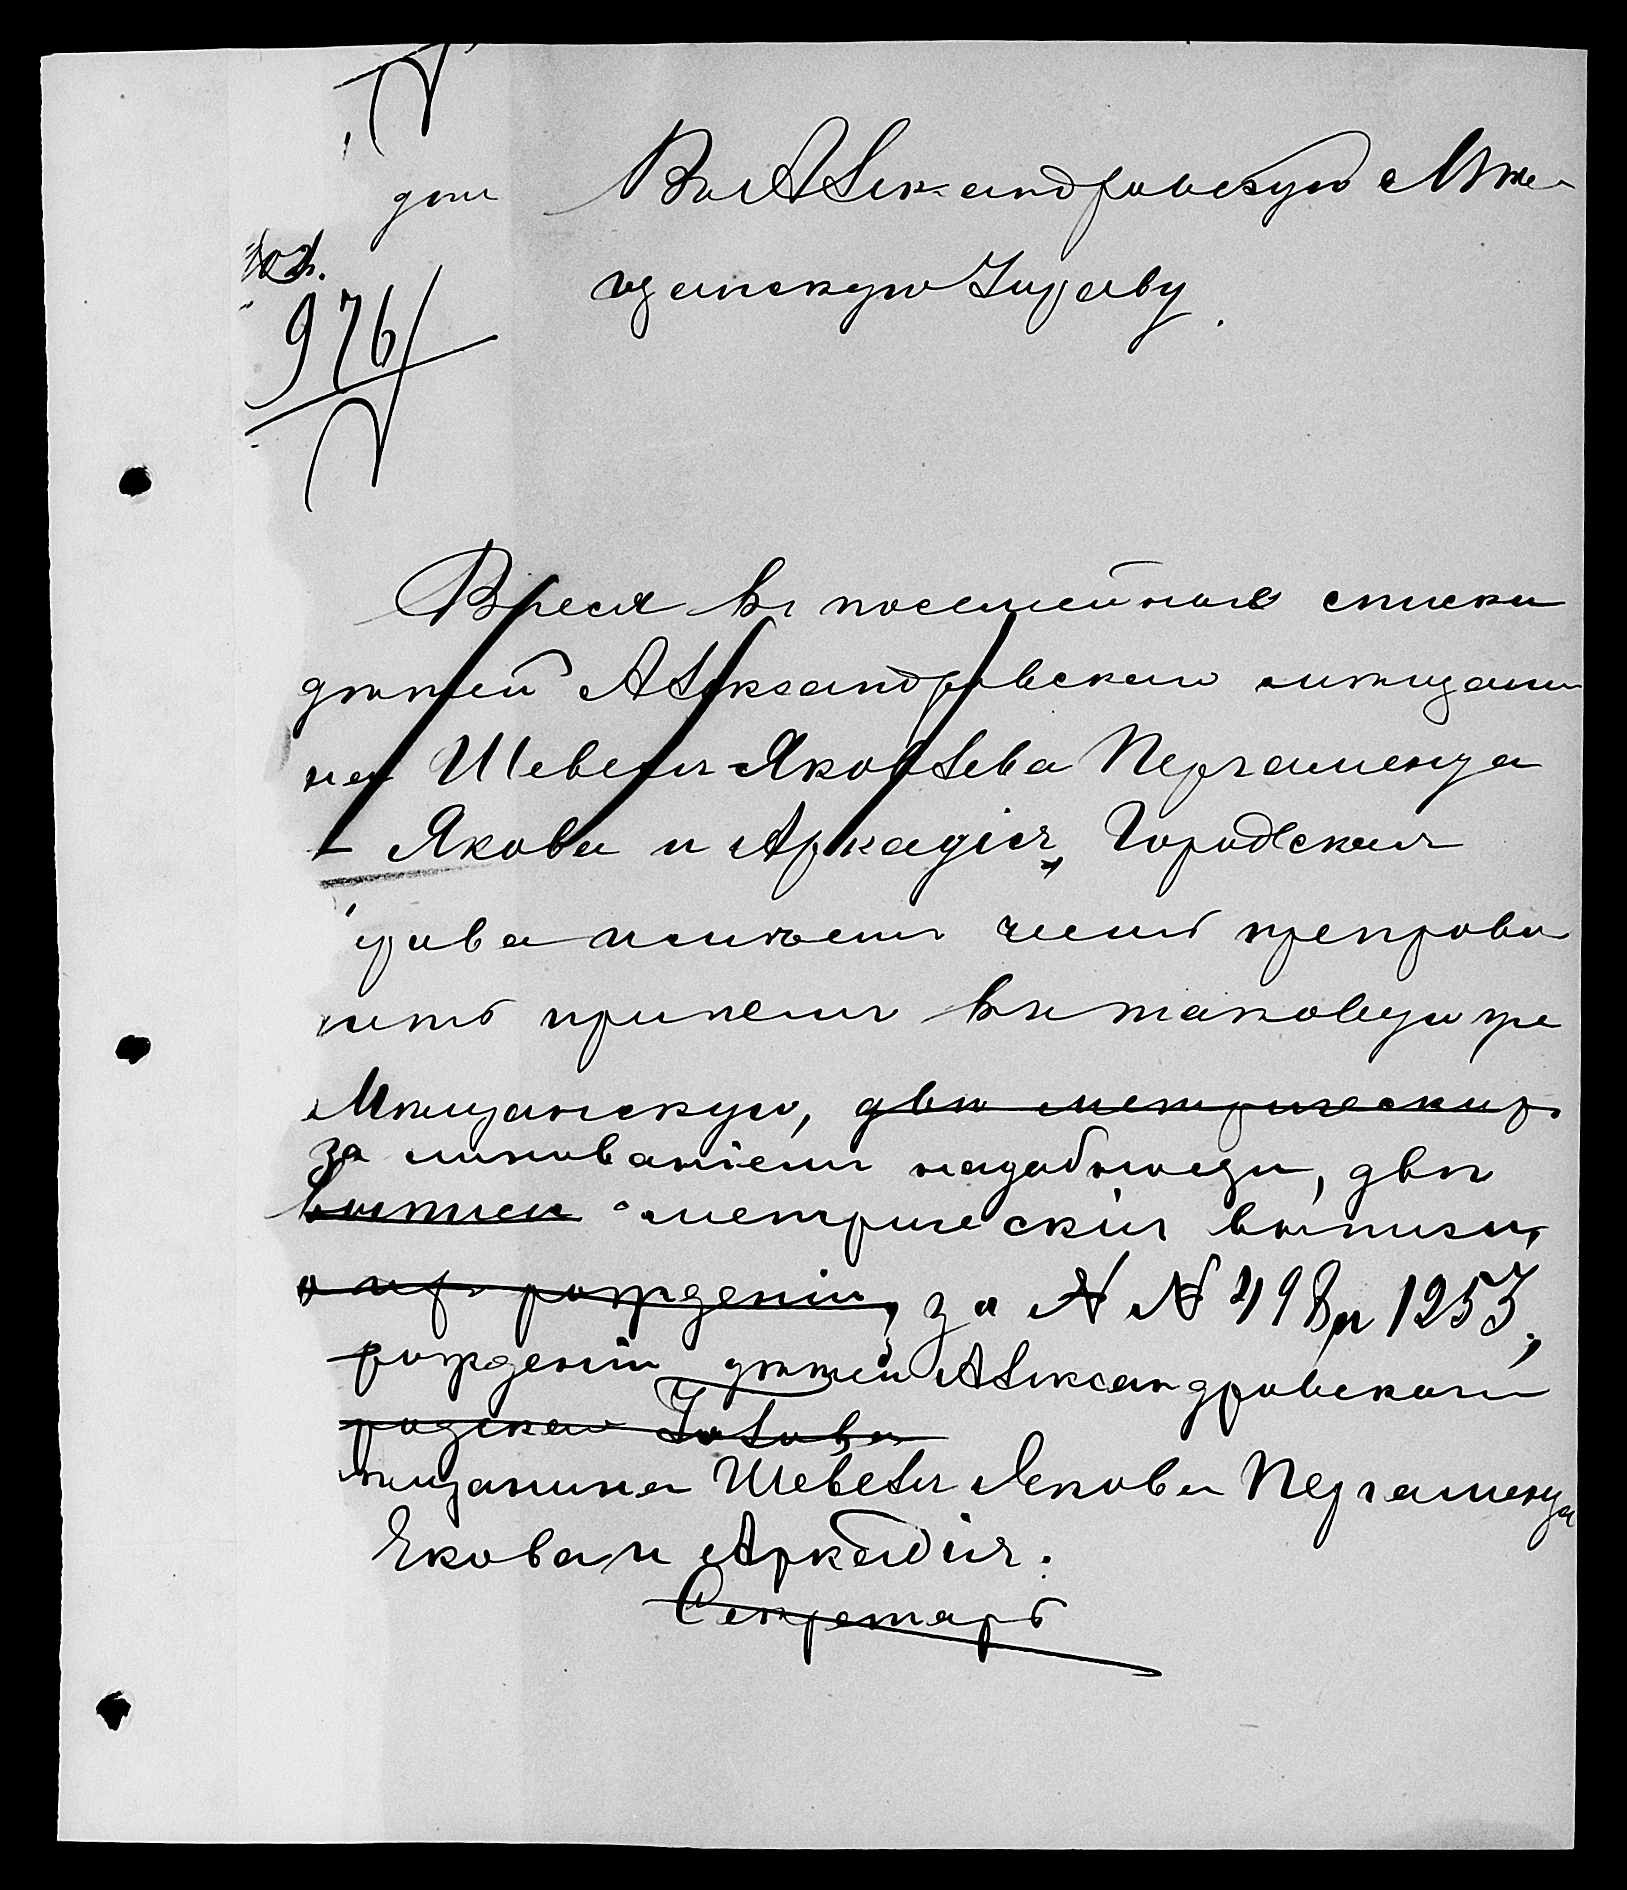 Въ Александровскую Мѣ-
дня
щанскую Управу.
976
Внеся въ посемейные списки
дѣтей Александровскаго мѣщани
на Шевеля Яковлева Пергаменца
Якова и Аркадія, Городская
Управа имѣетъ честь препрово
дить при семъ въ таковую же
Мѣщанскую, двѣ метрическія
за минованіемъ надобности, двѣ
выписи метрическія выписи,
о ихъ рожденіи, за № № 498 и 1253,
рожденіи дѣтей Александровскаго
мѣщанина Шевеля Якова Пергаменца
Якова и Аркадія.
Секретарь